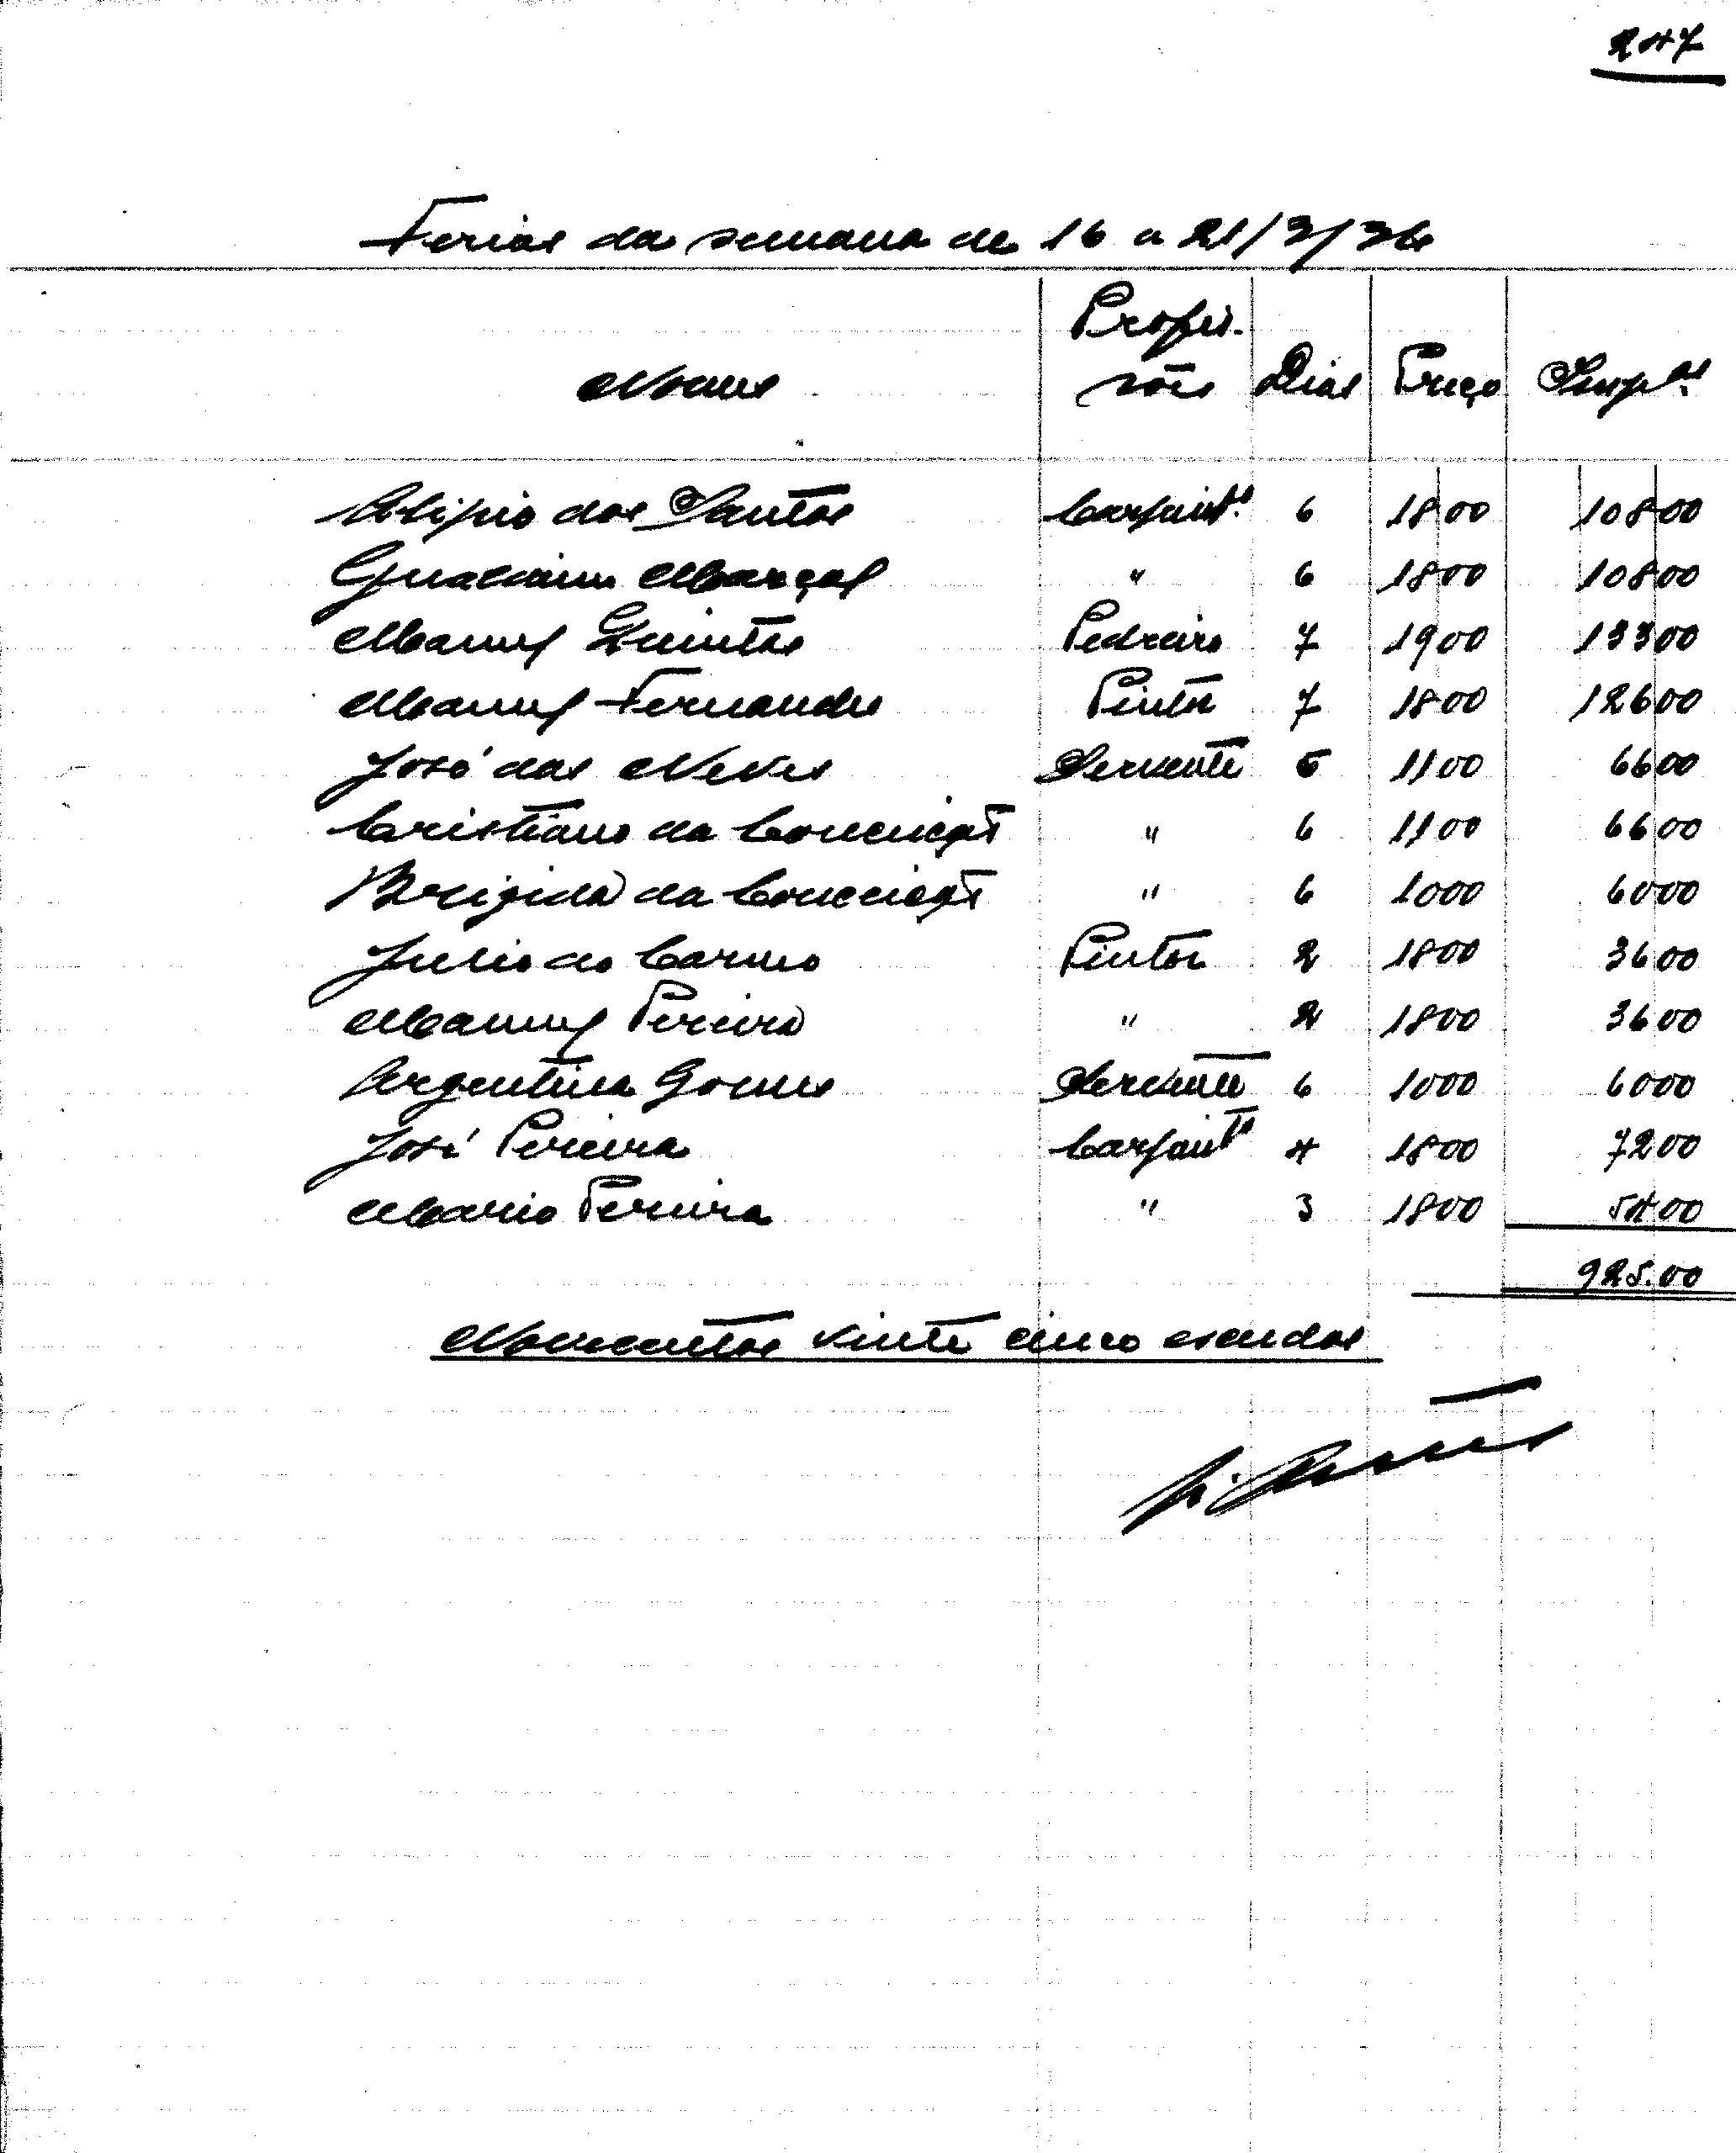 247
Ferias da semana de 16 a 21/3/36
Profis-
Nomes sões Dias Preço Simplᵃˢ
Alipio dos Santos Carpintº. 6 18 00 108 00
Graciano Marçal " 6 18 00 108 00
Manuel Quintas Pedreiro 7 19 00 133 00
Manuel Fernandes Pintor 7 18 00 126 00
José das Neves Servente 6 11 00 66 00
Cristiano da Conceição " 6 11 00 66 00
Brigida da Conceição " 6 10 00 60 00
Julio do Carmo Pintor 2 18 00 36 00
Manuel Pereira " 2 18 00 36 00
Argentina Gomes Servente 6 10 00 60 00
José Pereira Carpintº 4 18 00 72 00
Mario Pereira " 3 18 00 54 00
925.00
Novecentos vinte cinco escudos